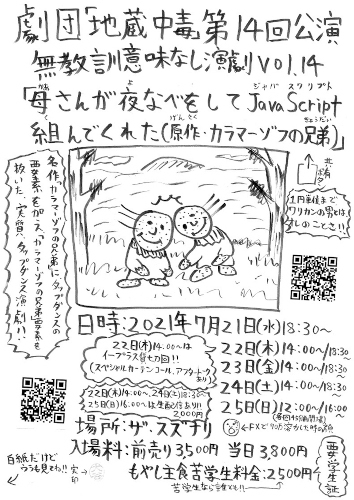 劇団「地蔵中毒」第14回公演
無教訓意味なし演劇vol.14
「母さんが夜なべをしてJavaScript
ジャバ スクリプト
組んでくれた(原作・カラマーゾフの兄弟)」
げんさく
きょうだい
1円単位まで
ワリカンの男とは、
私のことさ!!
名作「カラマーゾフの兄弟」に、タップダンスの
要素を加え、カラマーゾフの兄弟要素を
抜いた、実質、タップダンス演劇!!
日時:2021年7月21日(水)18:30~
22日(木)14:00~/18:30~
23日(金)14:00~/18:30~
24日(土)14:00~/18:30~
25日(日)12:00~/16:00~
22日(木)14:00~は
イープラス貸切回!!
(スペシャルカーテンコール、アフタートークあり)
22日(木)14:00~、24日(土)18:30~
25日(日)16:00~は生配信あり!!
2000円
←FXで90万溶かした時の顔
場所:ザ・スズナリ
入場料:前売り3,500円 当日3,800円
もやし主食苦学生料金:2,500円
苦学生なら誰でも!!
要・学生証
白紙だけど
うらも見てね!!